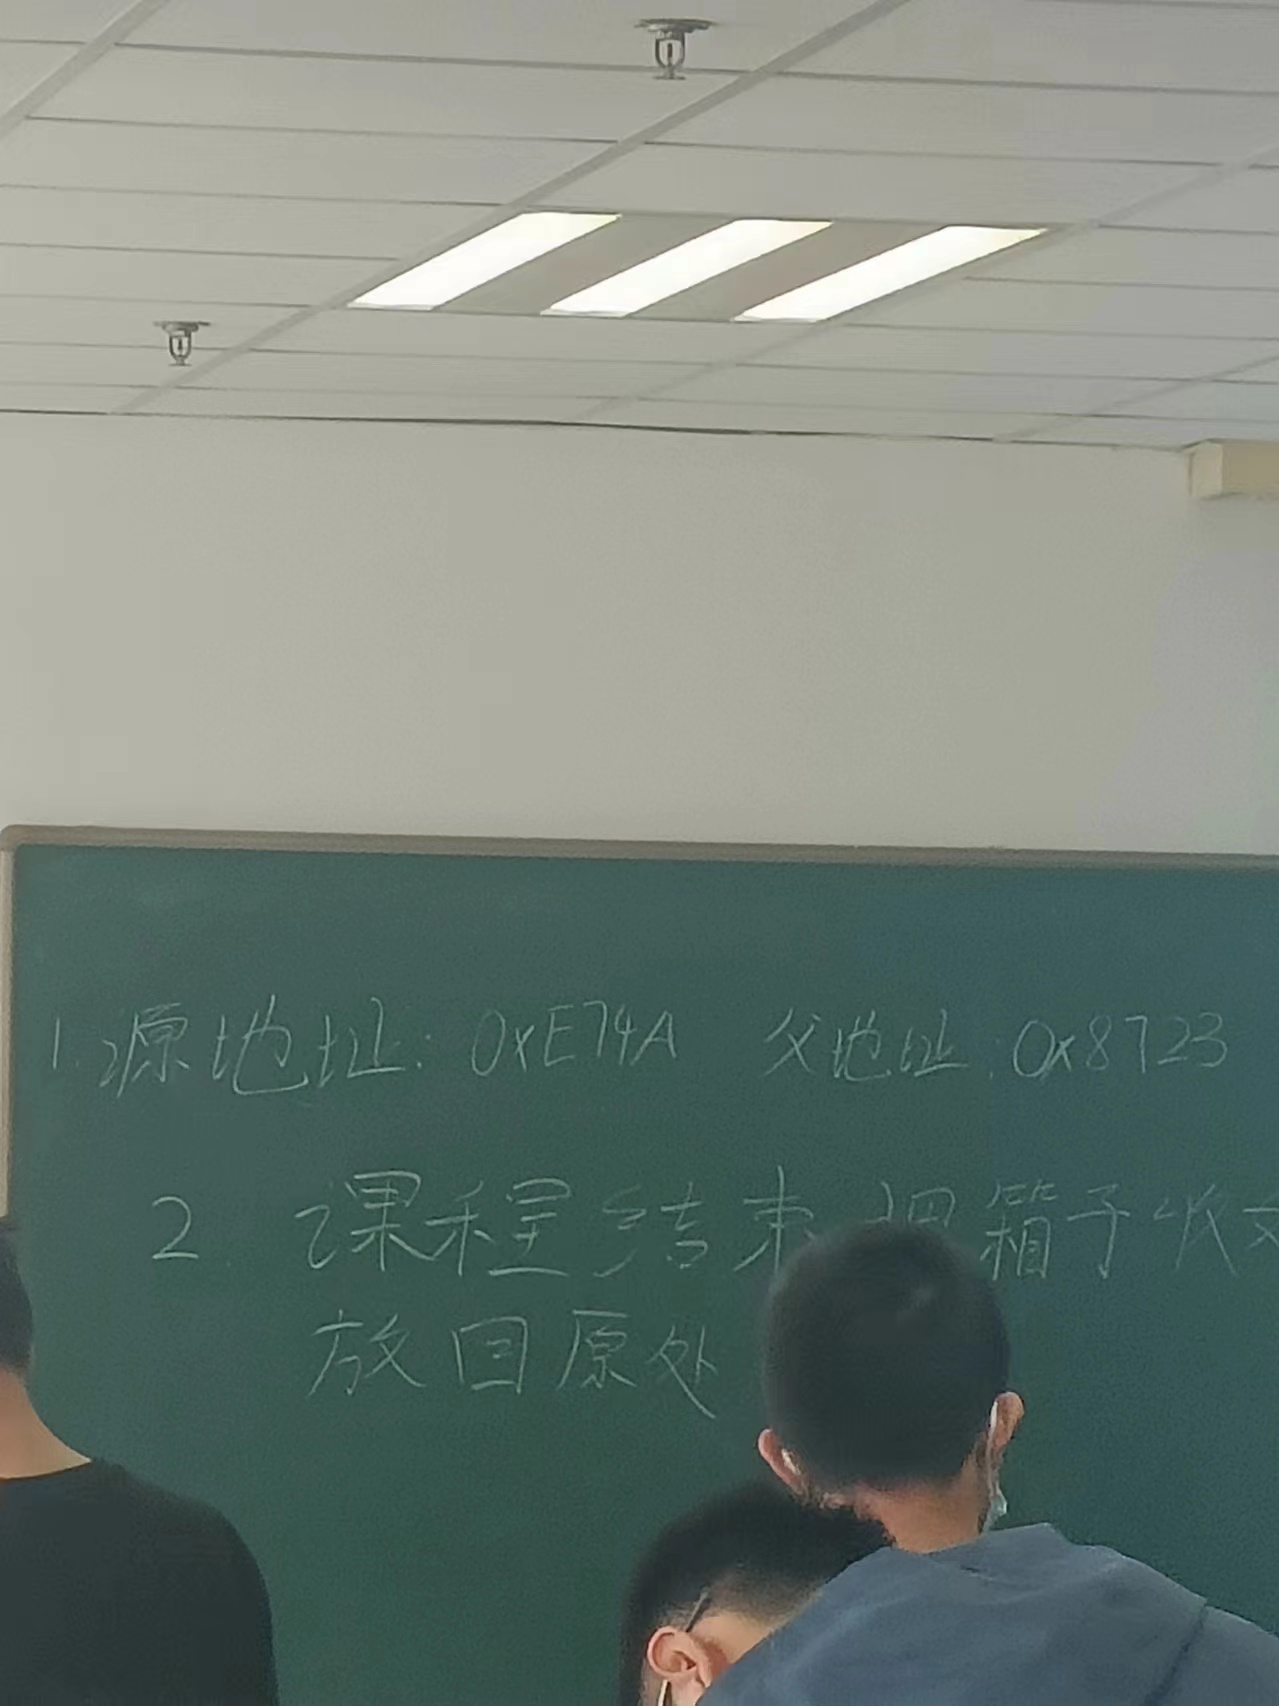 1. 源地址: 0xE74A 父地址: 0x8723
2. 课程结束 把箱子收
放回原处